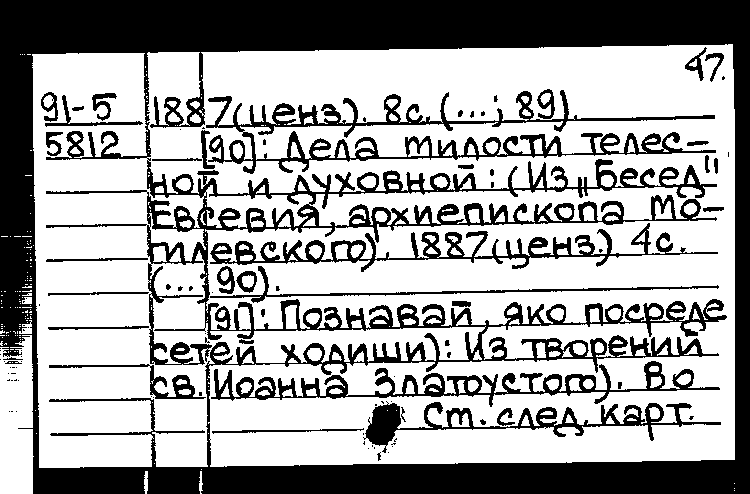 47.
91-5 1887(ценз.). 8с. (...; 89).
5812 [90]: Дела милости телес-
ной и духовной: (Из „Бесед"
Евсевия, архиепископа Мо-
гилевского). 1887(ценз.). 4с.
(...; 90).
[91]: Познавай, яко посреде
сетей ходиши): Из творений
св. Иоанна Златоустого). Во
См. след. карт.